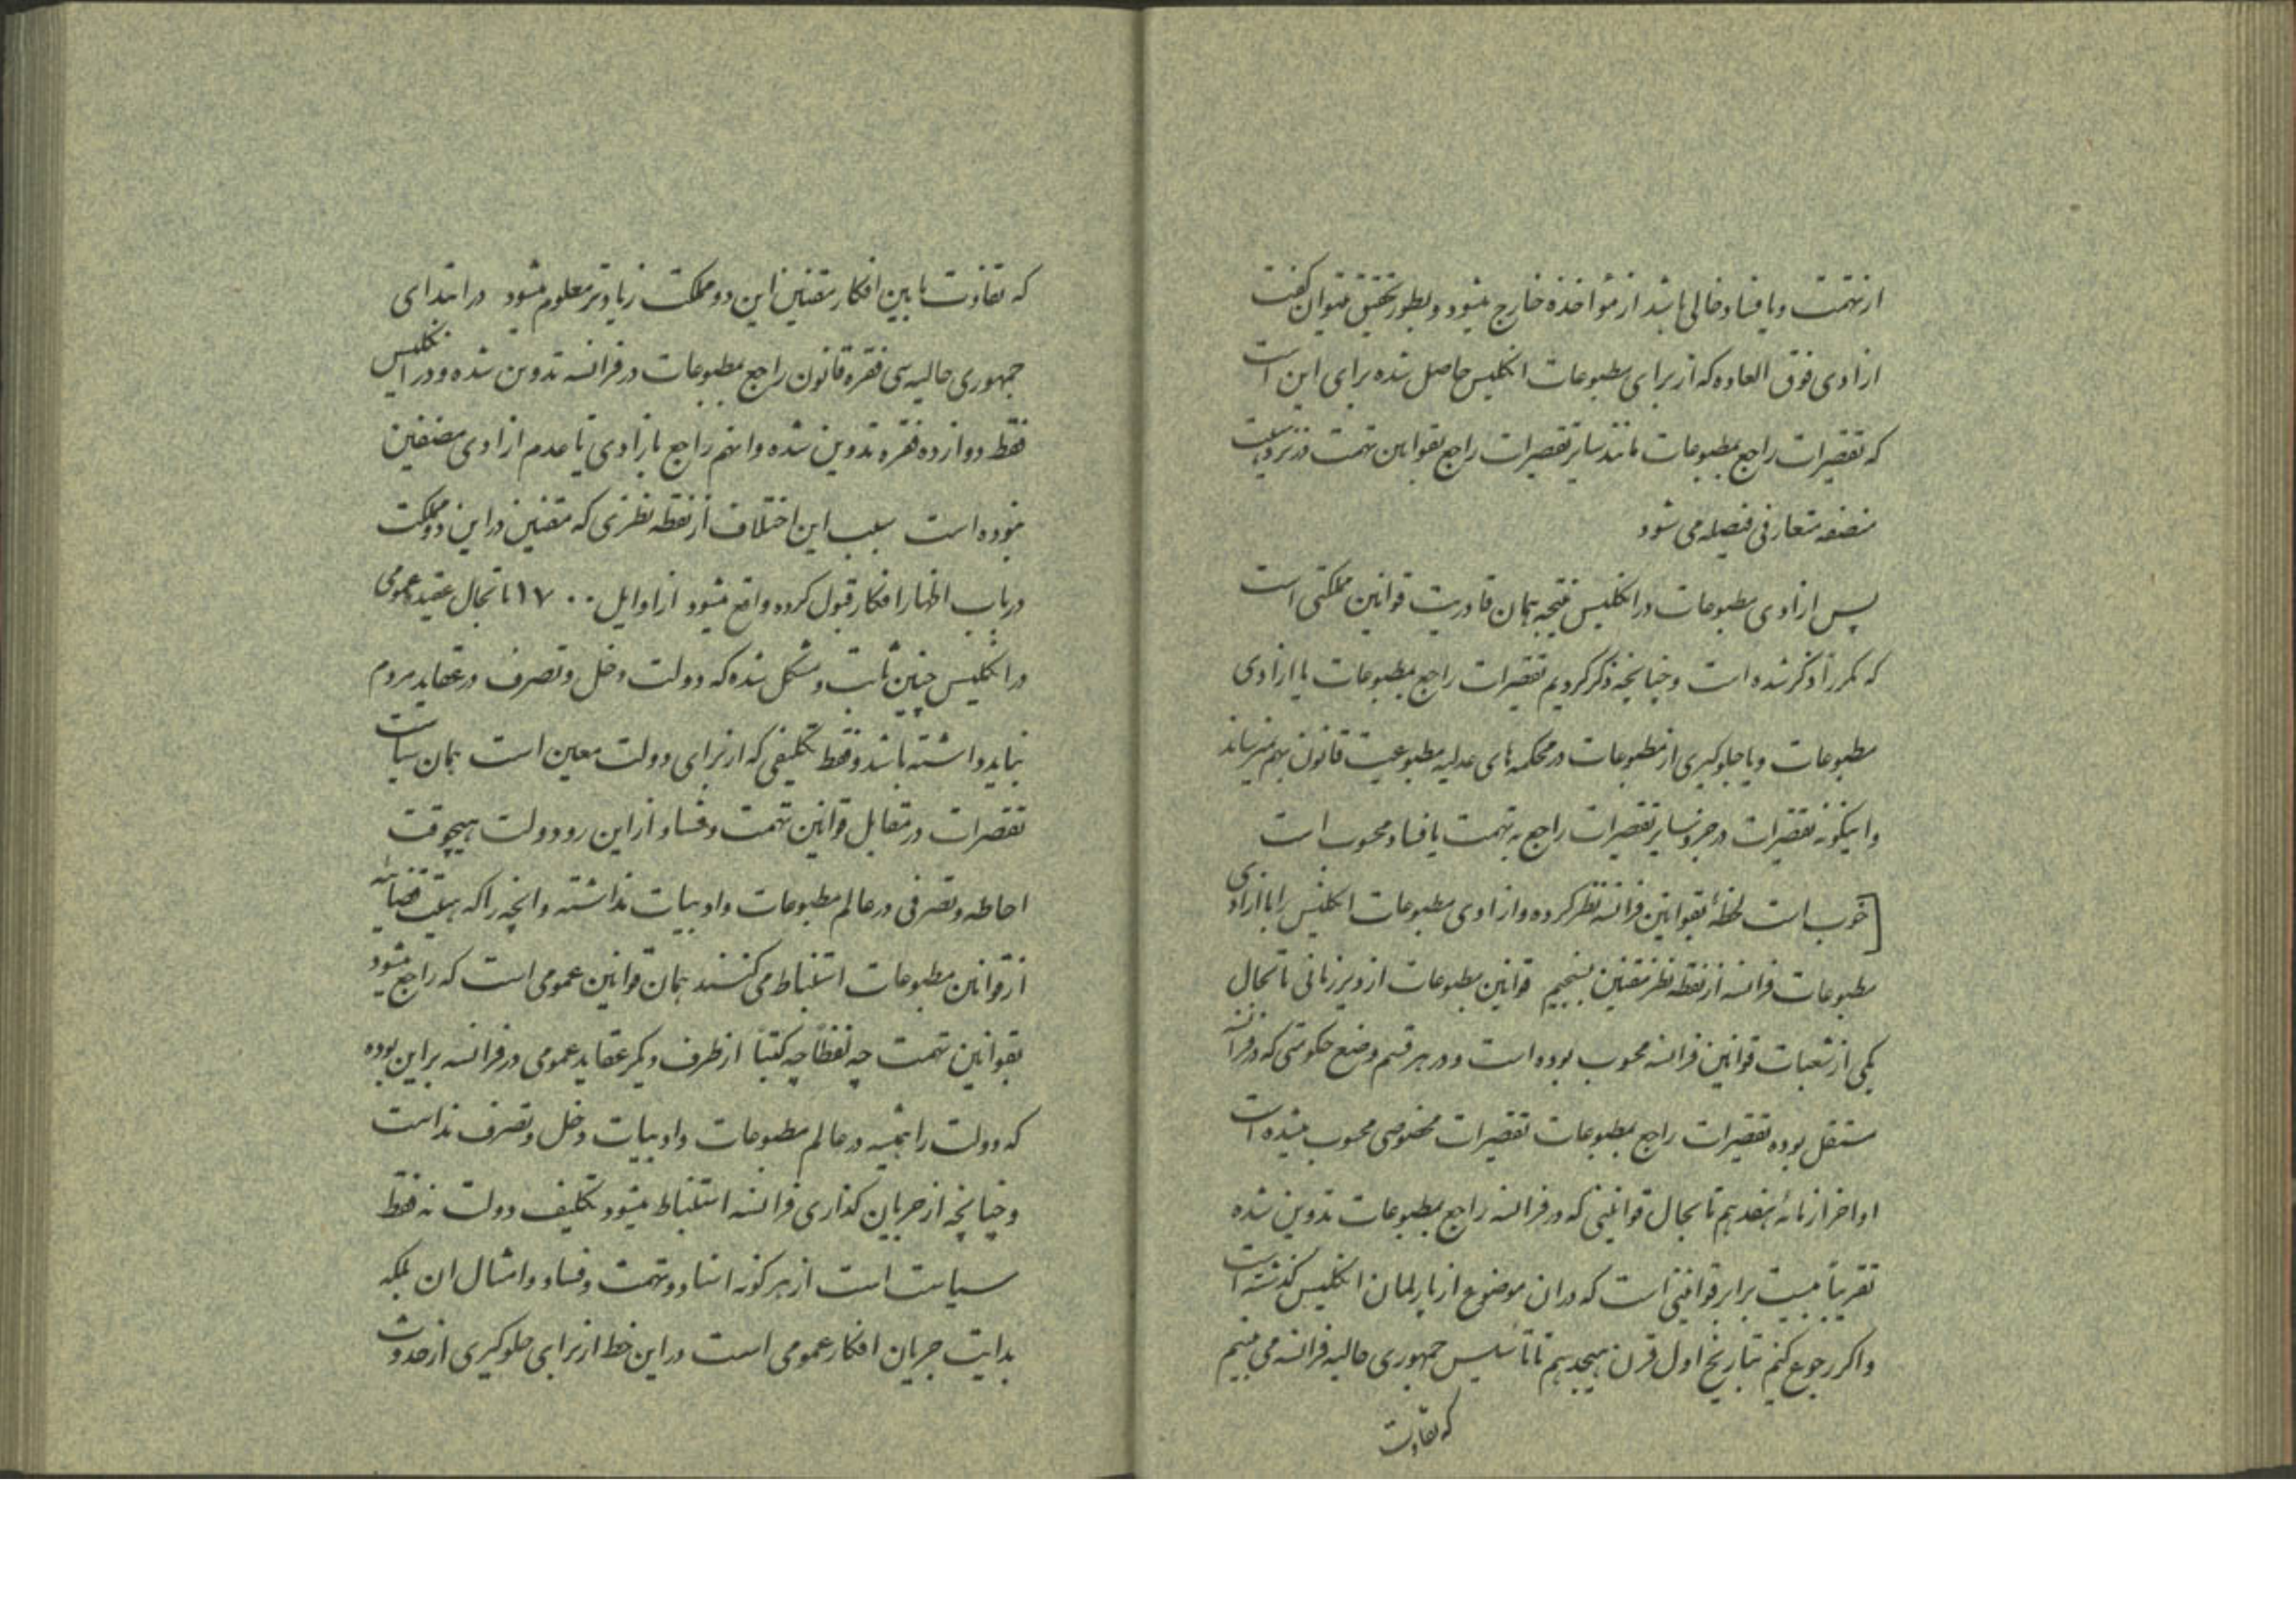 از تهمت و یا فساد خالی باشد از مؤاخذه خارج میشود و بطور تحقیق میتوان گفت
ازادی فوق العاده که از برای مطبوعات انگلیس حاصل شده برای این است
که تقصیرات راجع بمطبوعات مانند سایر تقصیرات راجع بقوانین تهمت در نزد هیئت
منصفه متعارفی فیصله می شود
پس ازادی مطبوعات در انگلیس نتیجه همان قادریت قوانین مملکتی است
که مکرر ذکر شده است و چنانچه ذکر کردیم تقصیرات راجع بمطبوعات یا ازادی
مطبوعات و یا جلوگیری از مطبوعات در محکمه های عدلیه مطبوعیت قانون بهم میرساند
و اینگونه تقصیرات در جزو سایر تقصیرات راجع به تهمت یا فساد محسوب است
[خوب است لحظهٔ بقوانین فرانسه نظر کرده و ازادی مطبوعات انگلیس را با ازادی
مطبوعات فرانسه از نقطه نظر مقننین بسنجیم قوانین مطبوعات از دیر زمانی تا بحال
یکی از شعبات قوانین فرانسه محسوب بوده است و در هر قسم وضع حکومتی که در فرانسه
مستقل بوده تقصیرات راجع بمطبوعات تقصیرات مخصوصی محسوب میشده است
اواخر از مائه هفدهم تا بحال قوانینی که در فرانسه راجع بمطبوعات تدوین شده
تقریباً بیست برابر قوانینی است که در ان موضوع از پارلمان انگلیس گذشته است
و اگر رجوع کنیم بتاریخ اول قرن هیجدهم تا تأسیس جمهوری حالیه فرانسه می بینیم
که تفاوت
که تفاوت مابین افکار مقننین این دو مملکت زیادتر معلوم میشود در ابتدای
جمهوری حالیه سی فقره قانون راجع بمطبوعات در فرانسه تدوین شده و در انگلیس
فقط دوازده فقره تدوین شده و انهم راجع بازادی یا عدم ازادی مصنفین
نبوده است سبب این اختلاف از نقطه نظری که مقننین در این دو مملکت
در باب اظهار افکار قبول کرده واقع میشود از اوایل ۱۷۰۰ تا بحال عقیده عمومی
در انگلیس چنین ثابت و مشکل شده که دولت دخل و تصرف در عقاید مردم
نباید داشته باشد و فقط تکلیفی که از برای دولت معین است همان سیاست
تقصیرات در مقابل قوانین تهمت و فساد از این رو دولت هیچوقت
احاطه و تصرفی در عالم مطبوعات و ادبیات نداشته و انچه را که هیئت قضائیه
از قوانین مطبوعات استنباط می کنند همان قوانین عمومی است که راجع میشود
بقوانین تهمت چه لفظاً چه کتباً از طرف دیگر عقاید عمومی در فرانسه بر این بوده
که دولت را همیشه در عالم مطبوعات و ادبیات دخل و تصرف نداست
و چنانچه از جریان گذاری فرانسه استنباط میشود تکلیف دولت نه فقط
سیاست است از هر گونه اسناد و تهمت و فساد و امثال ان بلکه
بدایت جریان افکار عمومی است در این خط از برای جلوگیری از حدوث